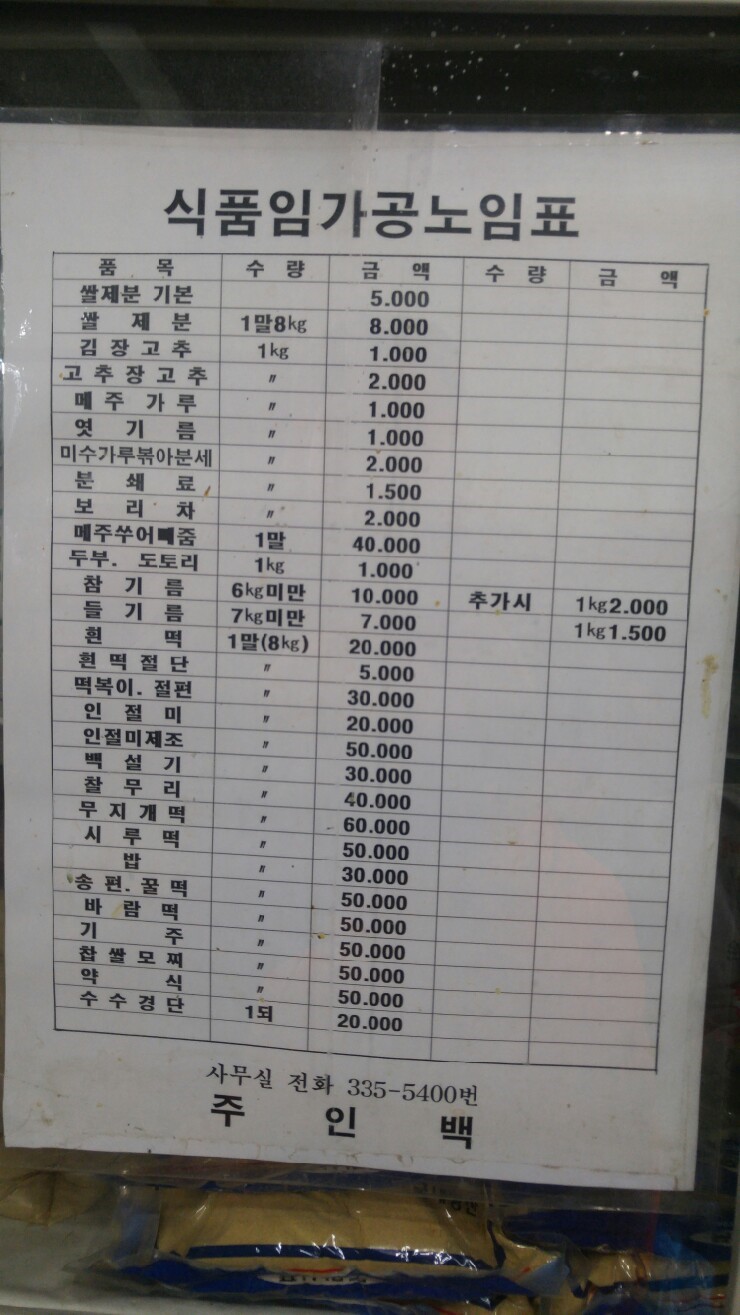 식품임가공노임표
품 목 수 량 금 액 수 량 금 액
쌀제분 기본 5.000
쌀 제 분 1말8kg 8.000
김 장 고 추 1kg 1.000
고 추 장 고 추 〃 2.000
메 주 가 루 〃 1.000
엿 기 름 〃 1.000
미수가루볶아분세 〃 2.000
분 쇄 료 〃 1.500
보 리 차 〃 2.000
메주쑤어빼줌 1말 40.000
두부. 도토리 1kg 1.000
참 기 름 6kg미만 10.000 추가시 1kg2.000
들 기 름 7kg미만 7.000 1kg1.500
흰 떡 1말(8kg) 20.000
흰 떡 절 단 〃 5.000
떡복이. 절편 〃 30.000
인 절 미 〃 20.000
인절미제조 〃 50.000
백 설 기 〃 30.000
찰 무 리 〃 40.000
무 지 개 떡 〃 60.000
시 루 떡 〃 50.000
밥 〃 30.000
송 편. 꿀 떡 〃 50.000
바 람 떡 〃 50.000
기 주 〃 50.000
찹 쌀 모 찌 〃 50.000
약 식 〃 50.000
수 수 경 단 1되 20.000
사무실 전화 335-5400번
주 인 백